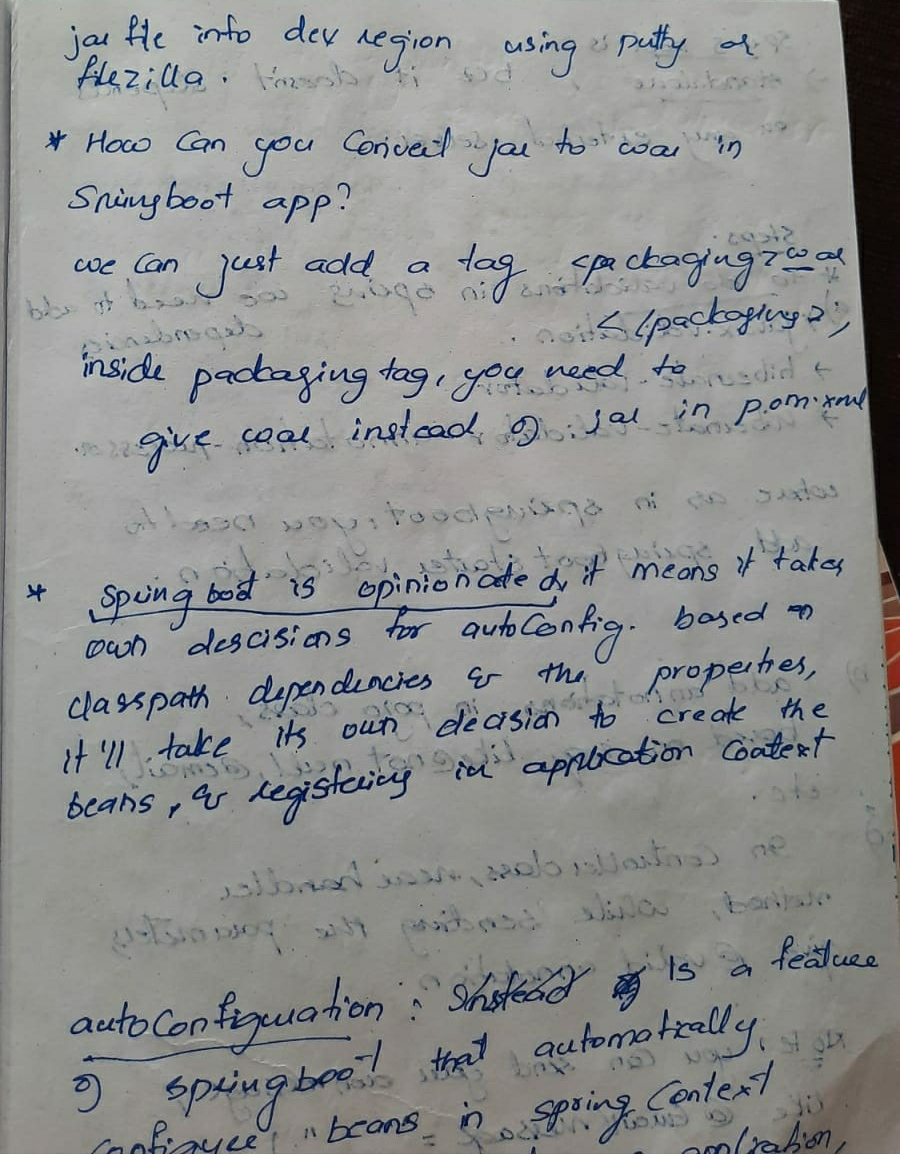 jar file into dev region using putty or
filezilla.
* How Can you Convert jar to war in
Springboot app?
we can just add a tag <packaging> war
</packaging>,
inside packaging tag, you need to
give war instead of jar in pom.xml
* Spring boot is opinionated, it means it takes
own descisions for autoConfig. based on
classpath dependencies & the properties,
it'll take its own decision to create the
beans, & registering in application context
autoConfiguration : Instead of Is a feature
of springboot that automatically
configure beans in spring Context
application,